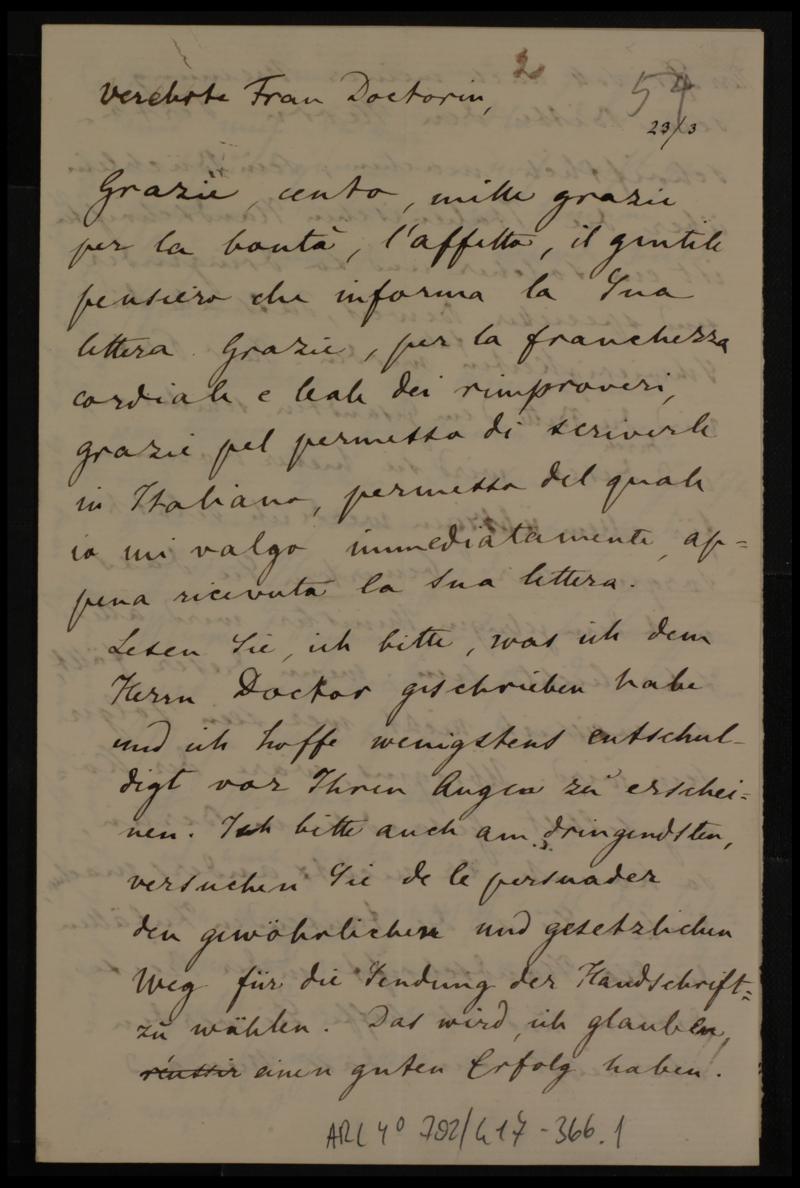 2
54
23/3
Verehrte Frau Doctorin,
Grazie, cento, mille grazie
per la bontà, l'affetto, il gentile
pensiero che informa la Sua
lettera. Grazie, per la franchezza
cordiale e leale dei rimproveri,
grazie pel permesso di scriverle
in Italiano, permesso del quale
io mi valgo immediatamente, ap=
pena ricevuta la Sua lettera.
Lesen Sie, ich bitte, was ich dem
Herrn Docktor geschrieben habe
und ich hoffe wenigstens entschul-
digt vor Ihren Augen zu erschei=
nen. Ich bitte auch am dringendsten,
versuchen Sie de le persuader
den gewöhrlichen und gesetzlichen
Weg für die Sendung der Handschrift=
zu wählen. Das wird, ich glauben,
réussir einen guten Erfolg haben!
ARC 4° 792/417-366.1